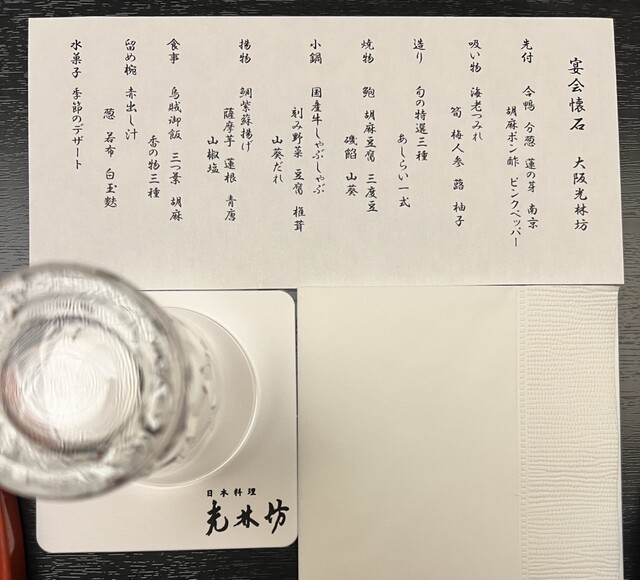 宴会懐石　大阪光林坊
先付　合鴨　分葱　蓮の芽　南京
胡麻ポン酢　ピンクペッパー
吸い物　海老つみれ
筍　梅人参　蕗　柚子
造り　旬の特選三種
あしらい一式
焼物　鮑　胡麻豆腐　三度豆
磯餡　山葵
小鍋　国産牛しゃぶしゃぶ
刻み野菜　豆腐　椎茸
山葵だれ
揚物　鯛紫蘇揚げ
薩摩芋　蓮根　青唐
山椒塩
食事　烏賊御飯　三つ葉　胡麻
香の物三種
留め椀　赤出し汁
葱　若布　白玉麩
水菓子　季節のデザート
日本料理
光林坊